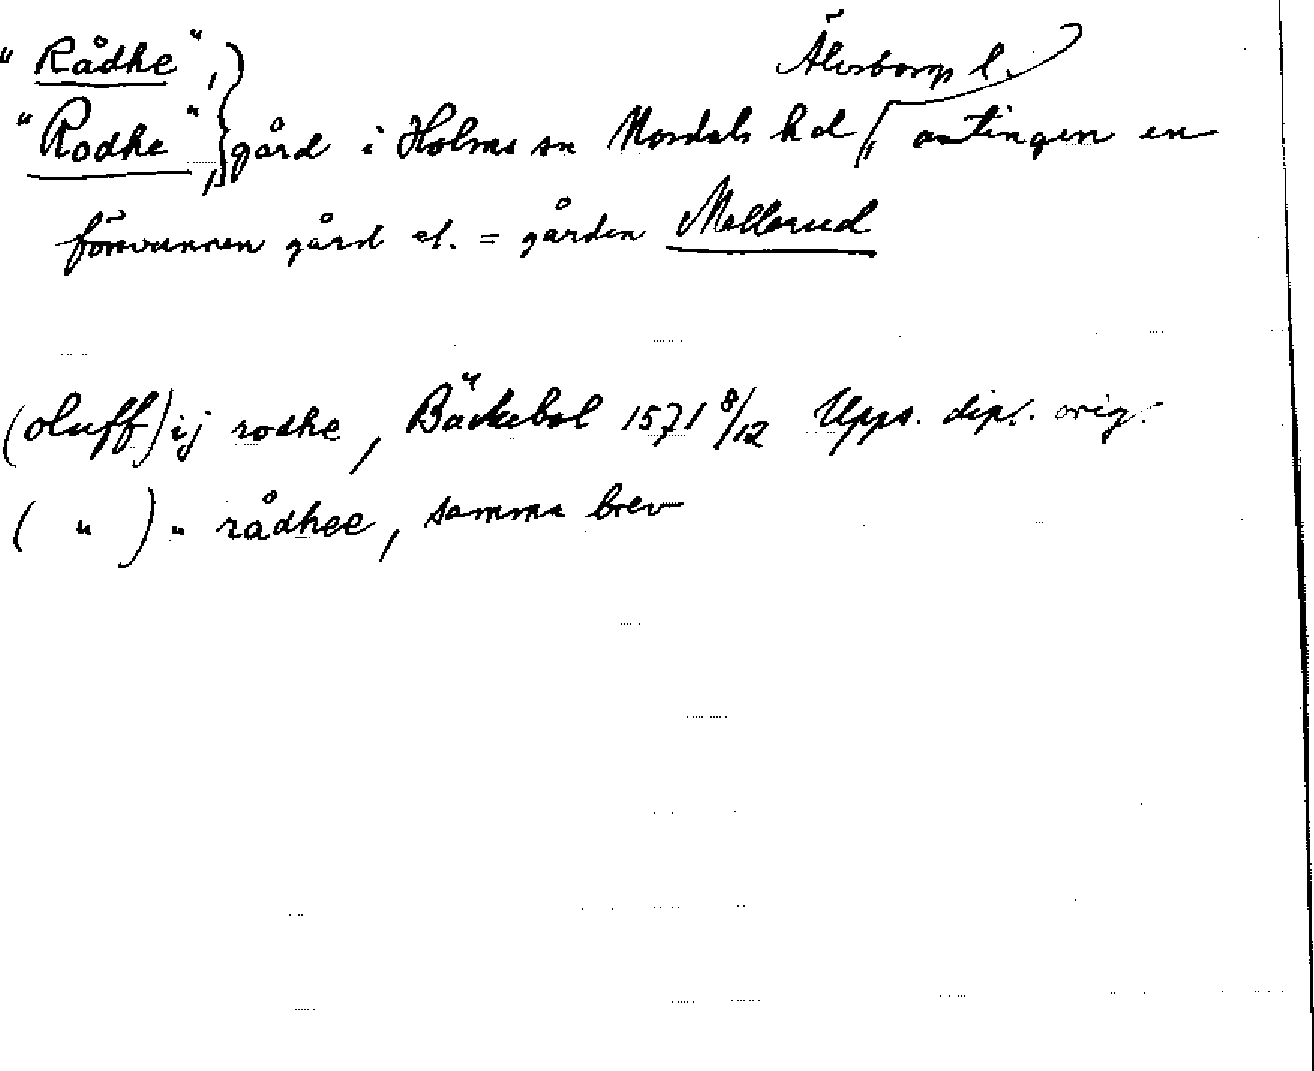 "Rådhe",
Älvsborgs l.
"Rodhe", gård i Holms sn Nordals hd, antingen en
försvunnen gård el. = gården Mellerud
(oluff) ij rodhe, Bäckebol 1571 8/12 Upps. dipl. orig.
( " ) " rådhee, samma brev